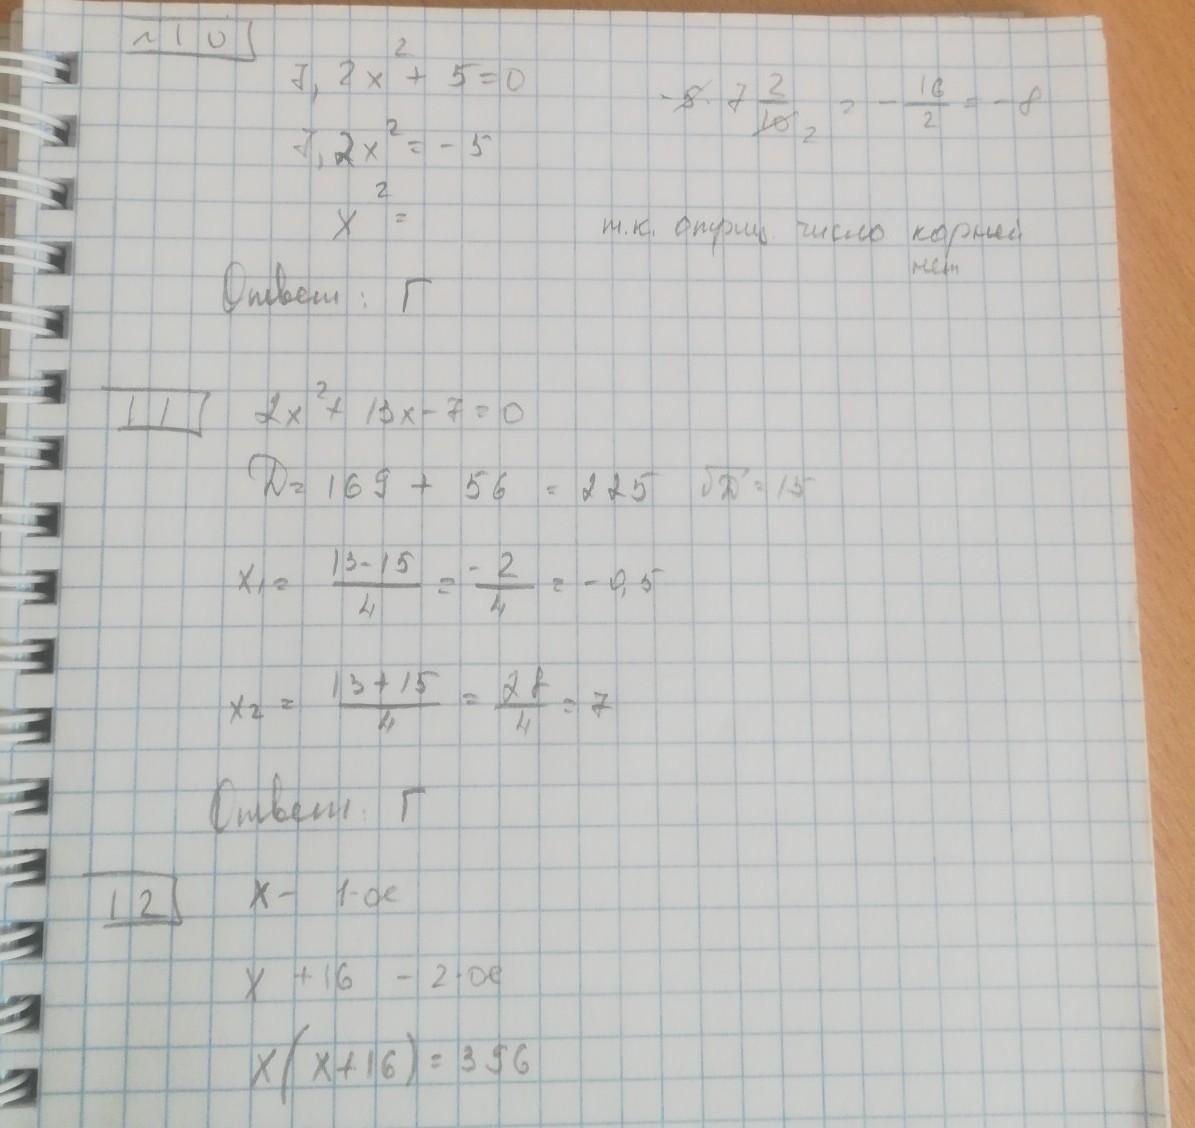 №10
7,2x² + 5 = 0
-5 · 7 2/10 2 = - 16/2 = -8
7,2x² = -5
x² =
т.к. отриц. число корней
нет
Ответ: Г
11
2x² + 13x - 7 = 0
D = 169 + 56 = 225 √D = 15
x₁ = (13-15)/4 = -2/4 = -0,5
x₂ = (13+15)/4 = 28/4 = 7
Ответ: Г
12
x - 1-ое
x + 16 - 2-ое
x(x+16) = 396